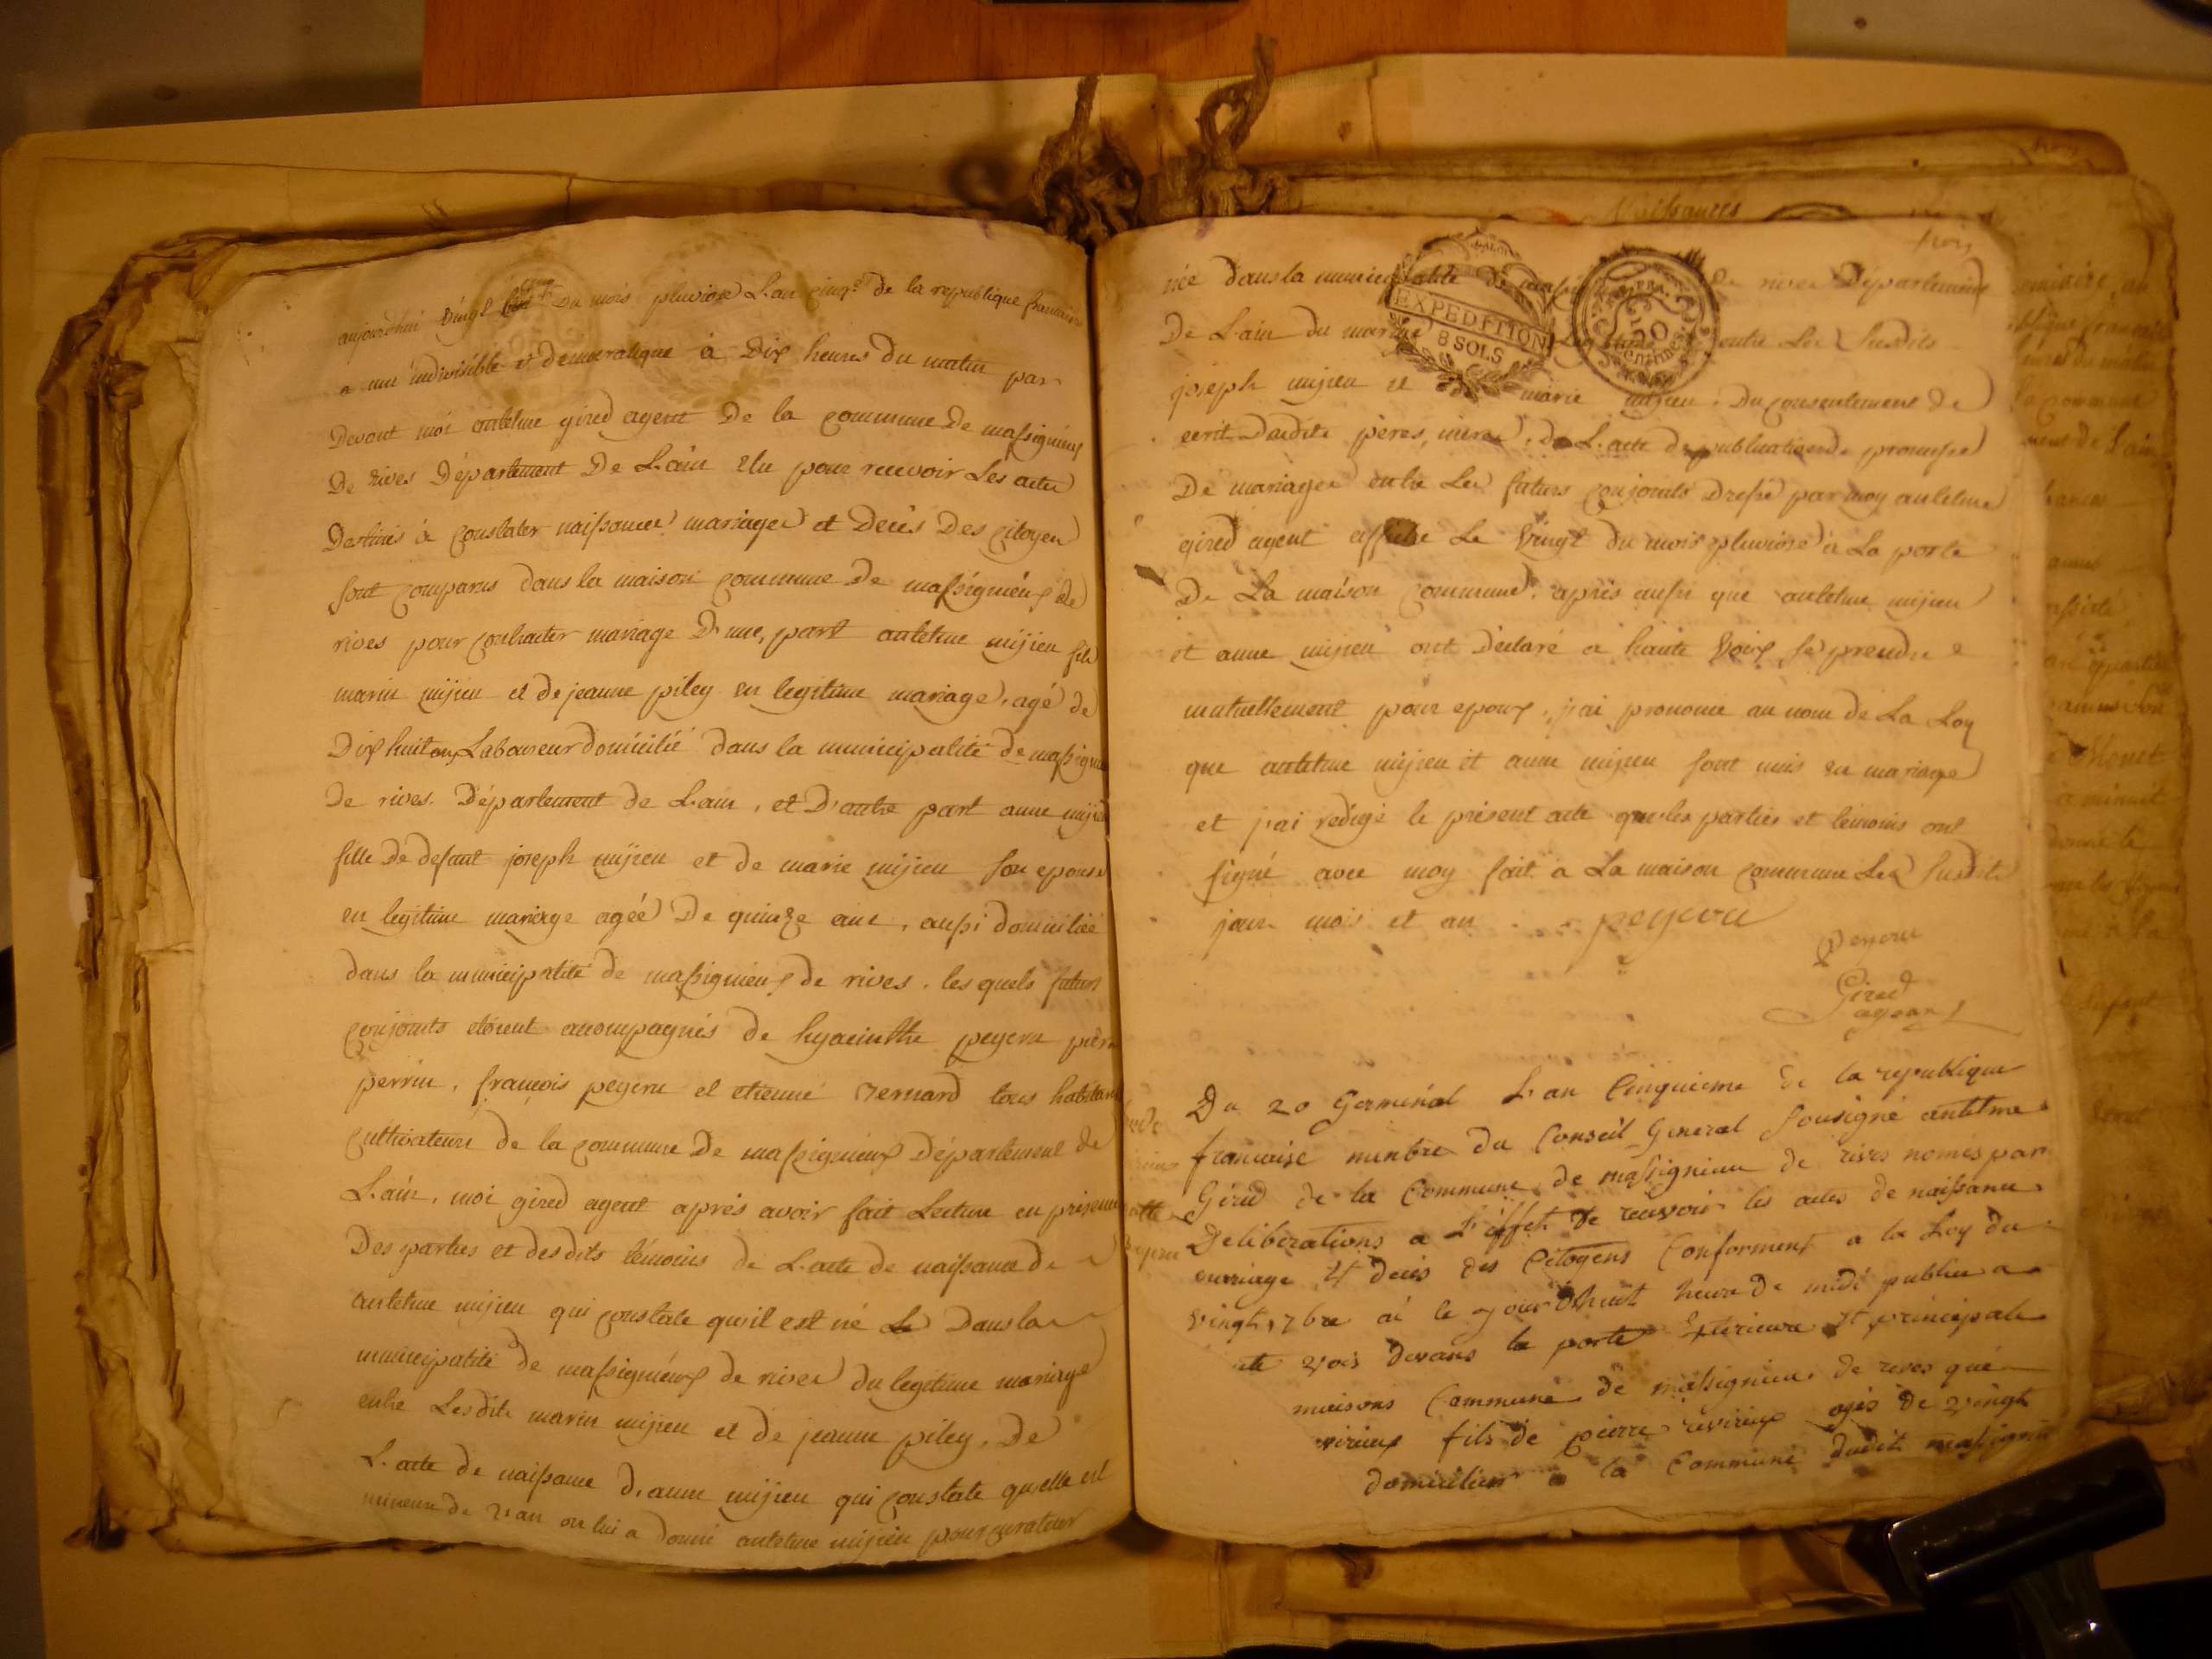 aujourdhui vingt cinq Du mois pluviose L'an cinq.e de la republique francaise
a une indivisible et democratique à Dix heures Du matin par
Devant moi antelme gired agent De la commune De massignieux
De rives Département De L'ain elu pour recevoir Les actes
Destinés à constater naissances mariages et Decès Des citoyen
sont comparus dans la maison commune De massignieux de
rives pour contracter mariage D'une part antelme mijieu fils
marin mijieu et de jeanne pitey en legitime mariage, agé de
Dix huit ans Laboureur domicilié dans la municipalité de massignieux
De rives. Département de L'ain, et D'autre part anne mijieu
fille De defunt joseph mijieu et de marie mijieu son epouse
en legitime mariage agée De quinze ans, aussi domiciliée
dans la municipalité de massignieux de rives. les quels futurs
conjoints etoient acompagnés de hyacinthe peyeru pierre
perrin, françois peyeru et etienne Bernard tous habitans
cultivateurs de la commune De massignieux Département de
L'ain. moi gired agent après avoir fait Lecture en présence
Des parties et desdits témoins de L'acte de naissance de
antelme mijieu qui constate qu'il est né Le Dans la
municipalité de massignieux de rives du legitime mariage
entre Lesdits marin mijieu et de jeanne pitey, De
L'acte de naissance d'anne mijieu qui constate qu'elle est
mineure de 21 an on lui a donné antelme mijieu pour curateur
Naissances
trois
née dans la municipalité de de rives Département
De L'ain du mariage entre Les susdits
EXPEDITION
8 SOLS
50
centimes
joseph mijieu et marie mijieu. Du consentement de
ecrit Desdits pères, mères, de L'acte de publication de promesse
De mariage entre Les futurs conjoints Dressé par moy antelme
gired agent affiche Le vingt du mois pluviose à La porte
De La maison commune. après aussi que antelme mijieu
et anne mijieu ont déclaré a haute voix se prendre
mutuellement pour epoux, j'ai prononcé au nom de La Loy
que antelme mijieu et anne mijieu sont unis en mariage
et j'ai redigé le présent acte que les parties et témoins ont
signé avec moy fait a La maison commune Les susdits
jour mois et an . . peyeru
peyeru
Gired
agent
Du 20 Germinal L'an Cinquieme de la republique
francaise menbre du Conseil General Sousigné antelme
Gired de la Commune de massignieu de rives només par
Deliberations a L'effet de recevoir les actes de naissance
mariage et deces des Citoyens Conforment a la Loy du
vingt 7bre ai le jourdhuit heure de midi publier a
ute vois devans la porte Exterieure et principale
maisons Commune de massignieu de rives que
virieux fils de pierre revirieux agés de vingt
domicilier a la Commune dudit massignieu